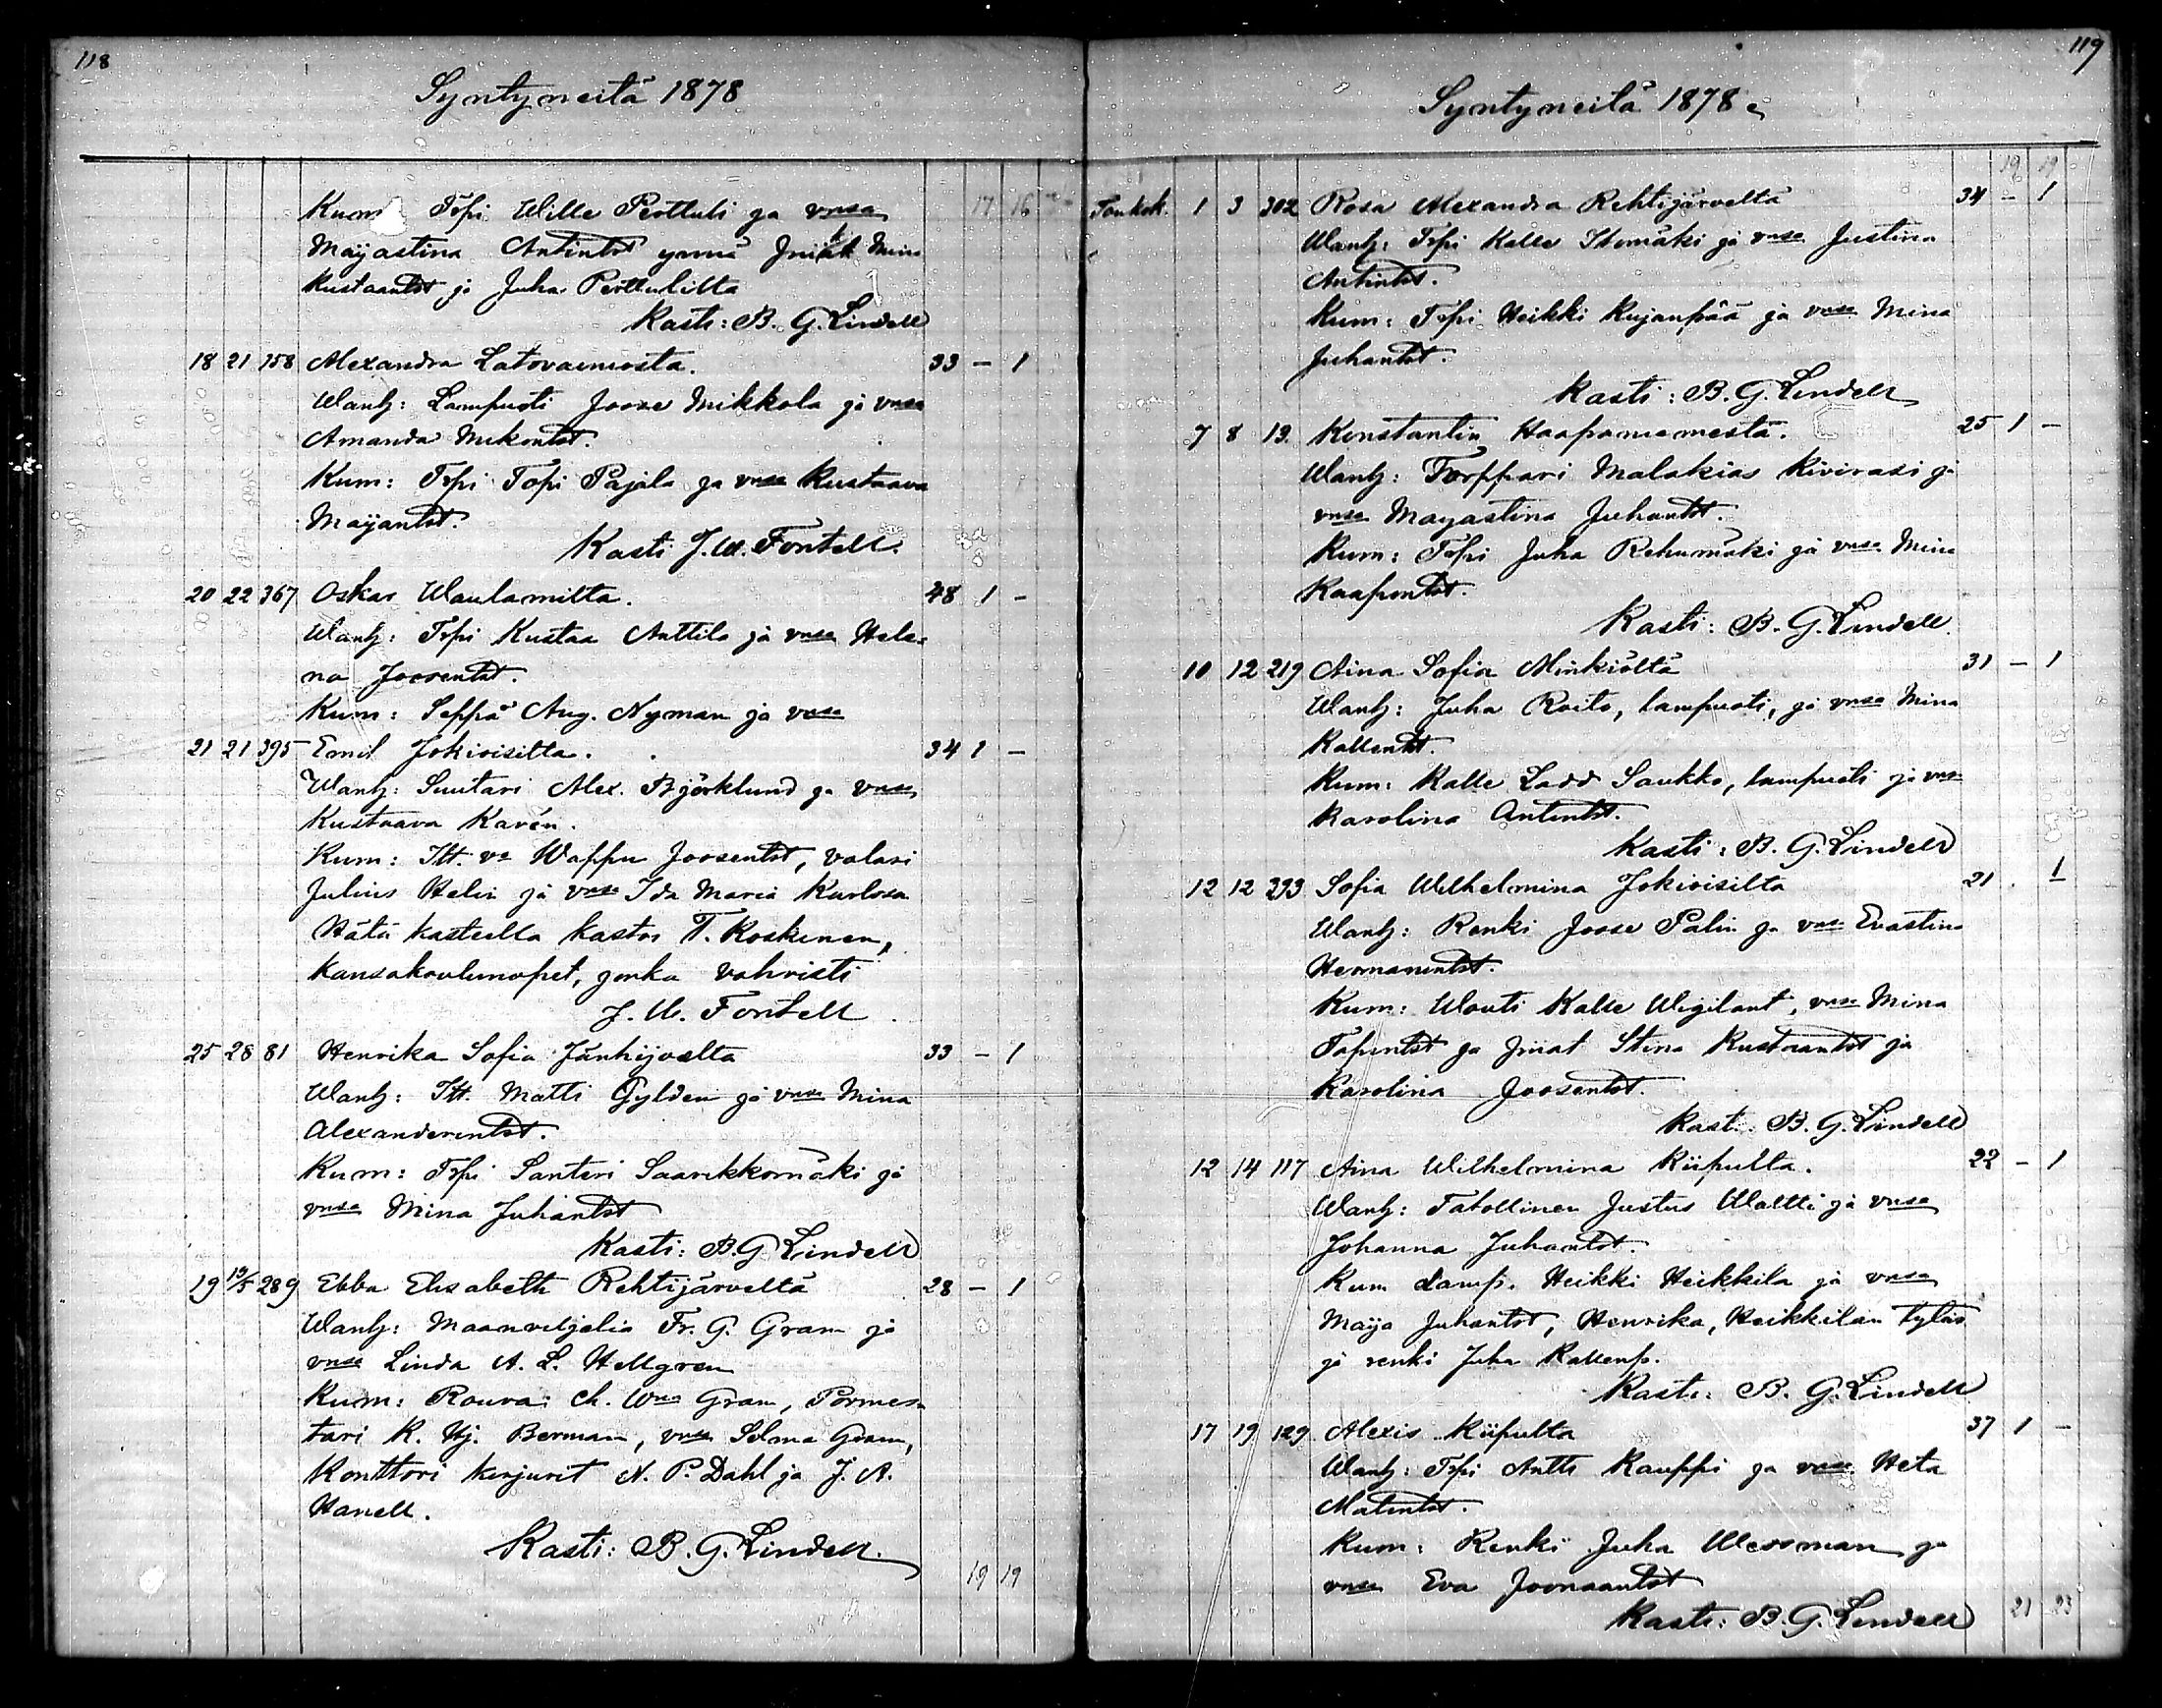 118
Syntyneitä 1878
17 16
Kum Trpi Wille Perttuli ja vmsa
Maijastina Antintrt ynnä Mina
Kustaantrt ja Juha Perttulilta
Kasti: B. G. Lindell
18 21 158 Alexandra Latovainiosta. 33 – 1
Wanh: Lampuoti Joose Mikkola ja vmsa
Amanda Mikontrt.
Kum: Trpi Topi Pajala ja vmsa Kustaava
Maijantrt.
Kasti J. W. Fontell.
20 22 367 Oskar Waulamilta. 48 1 –
Wanh: Trpi Kustaa Anttila ja vmsa Hele-
na Joosentrt.
Kum: Seppä Aug. Nyman ja vmsa
21 21 395 Emil Jokioisilta. 34 1 –
Wanh: Suutari Alex. Björklund ja vmsa
Kustaava Karén.
Kum: Itt. va Wappu Joosentrt, valari
Julius Helin ja vmsa Ida Maria Karlosa
Hätä kasteella kastoi T. Koskinen,
kansakoulunopet, jonka vahvisti
J. W. Fontell
25 28 81 Henrika Sofia Jänhijoelta 33 – 1
Wanh: Itt. Matti Gylden ja vmsa Mina
Alexanderintrt.
Kum: Trpi Santeri Saarikkomäki ja
vmsa Mina Juhantrt
Kasti: B. G. Lindell
19 19/5 289 Ebba Elisabeth Rehtijärveltä 28 – 1
Wanh: Maanviljeliä Fr. G. Gram ja
vmsa Linda A. L. Hellgren
Kum: Rouva Ch. Wma Gram, Pormes-
tari K. Hj. Berman, vmsa Selma Gram,
Konttori kirjurit N. P. Dahl ja J. A.
Hanell.
Kasti: B. G. Lindell.
19 19
119
Syntyneitä 1878
19 19
Toukok. 1 3 302 Rosa Alexandra Rehtijärveltä 34 – 1
Wanh: Trpi Kalle Isomäki ja vmsa Justina
Antintrt.
Kum: Trpi Heikki Kujanpää ja vmsa Mina
Juhantrt.
Kasti: B. G. Lindell
7 8 19. Konstantin Haapaniemestä. 25 1 –
Wanh: Torppari Malakias Kivivasi ja
vmsa Majastina Juhantrt.
Kum: Trpi Juha Rehumäki ja vmsa Mina
Kaapontrt.
Kasti: B. G. Lindell.
10 12 219 Aina Sofia Minkiöltä 31 – 1
Wanh: Juha Roito, lampuoti, ja vmsa Mina
Kallentrt.
Kum: Kalle Ladd Saukko, lampuoti ja vmsa
Karolina Antintrt.
Kasti: B. G. Lindell
12 12 393 Sofia Wilhelmina Jokioisilta 21 . 1
Wanh: Renki Joose Palin ja vmsa Evastina
Hermanintrt.
Kum: Wouti Kalle Wigilant, vmsa Mina
Tapintrt ja Stina Kustaantrt ja
Karolina Joosentrt.
Kasti: B. G. Lindell
12 14 117 Aina Wilhelmina Kiipulta. 22 – 1
Wanh: Talollinen Justus Waltti ja vmsa
Johanna Juhantrt.
Kum Lamp. Heikki Heikkilä ja vmsa
Maija Juhantrt, Henrika, Heikkilän tytär
ja renki Juha Kallenp.
Kasti: B. G. Lindell
17 19 129 Alexis Kiipulta 37 1 –
Wanh: Trpi Antti Kauppi ja vmsa Heta
Matintrt.
Kum: Renki Juha Wessman ja
vmsa Eva Joonaantrt
Kasti: B. G. Lindell
21 23